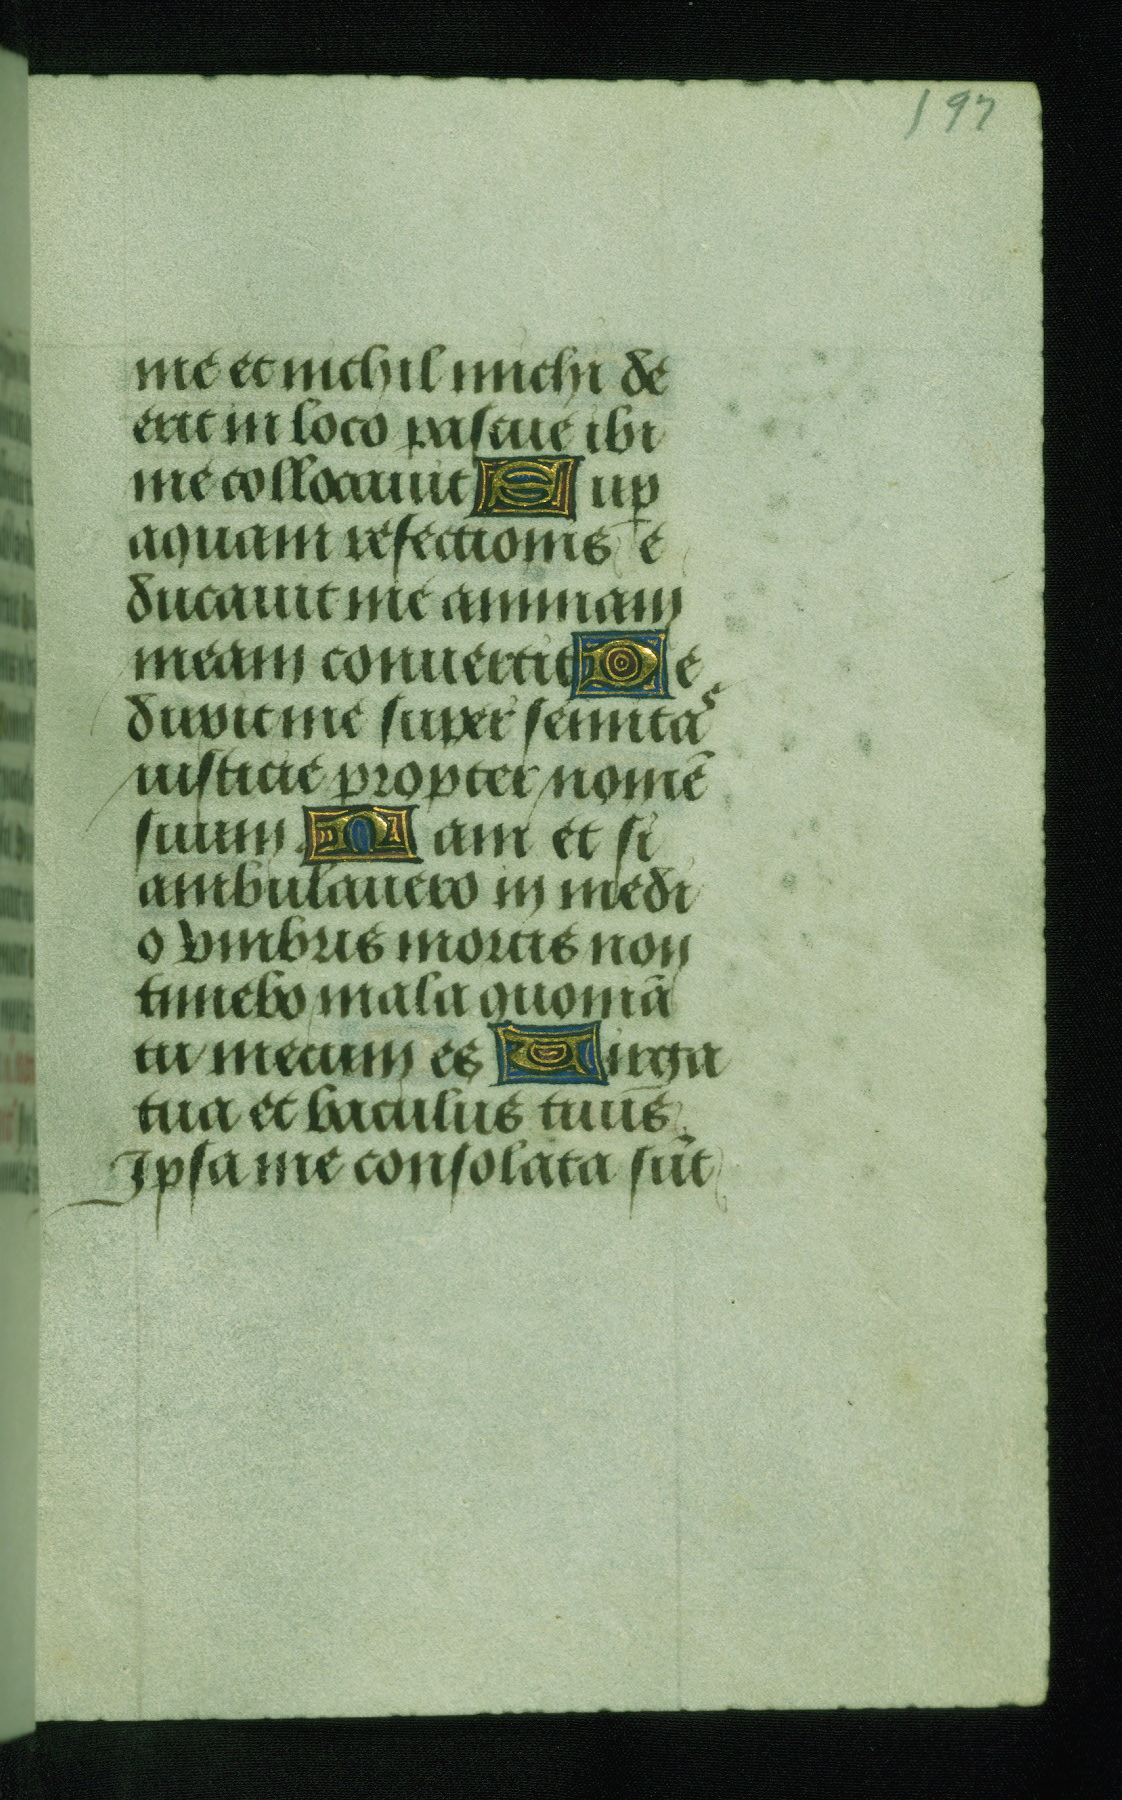 197
me et nichil michi de
erit in loco pascue ibi
me collocauit Sup
aquam refectionis e
ducauit me animam
meam conuertit De
duxit me super semitas
iusticie propter nomē
suum. Nam et si
ambulauero in medi
o vmbris mortis non
timebo mala quoniā
tu mecum es Virga
tua et baculus tuus.
Ipsa me consolata sūt